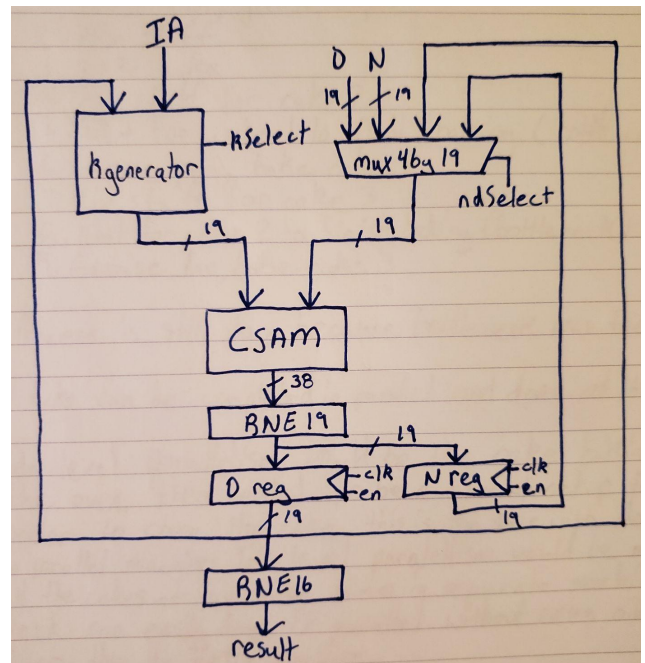 IA
D N
19 19
kSelect
kgenerator
mux 4by 19
ndSelect
19
19
CSAM
38
RNE 19
19
D reg
clk
en
N reg
clk
en
19
19
RNE16
result